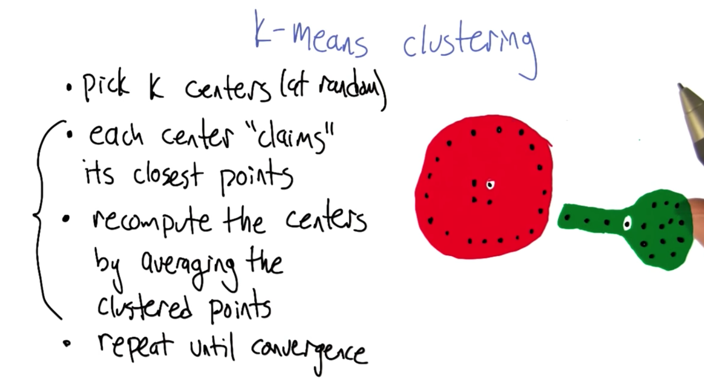 k-means clustering
• pick K centers (at random)
• each center "claims"
its closest points
• recompute the centers
by averaging the
clustered points
• repeat until convergence